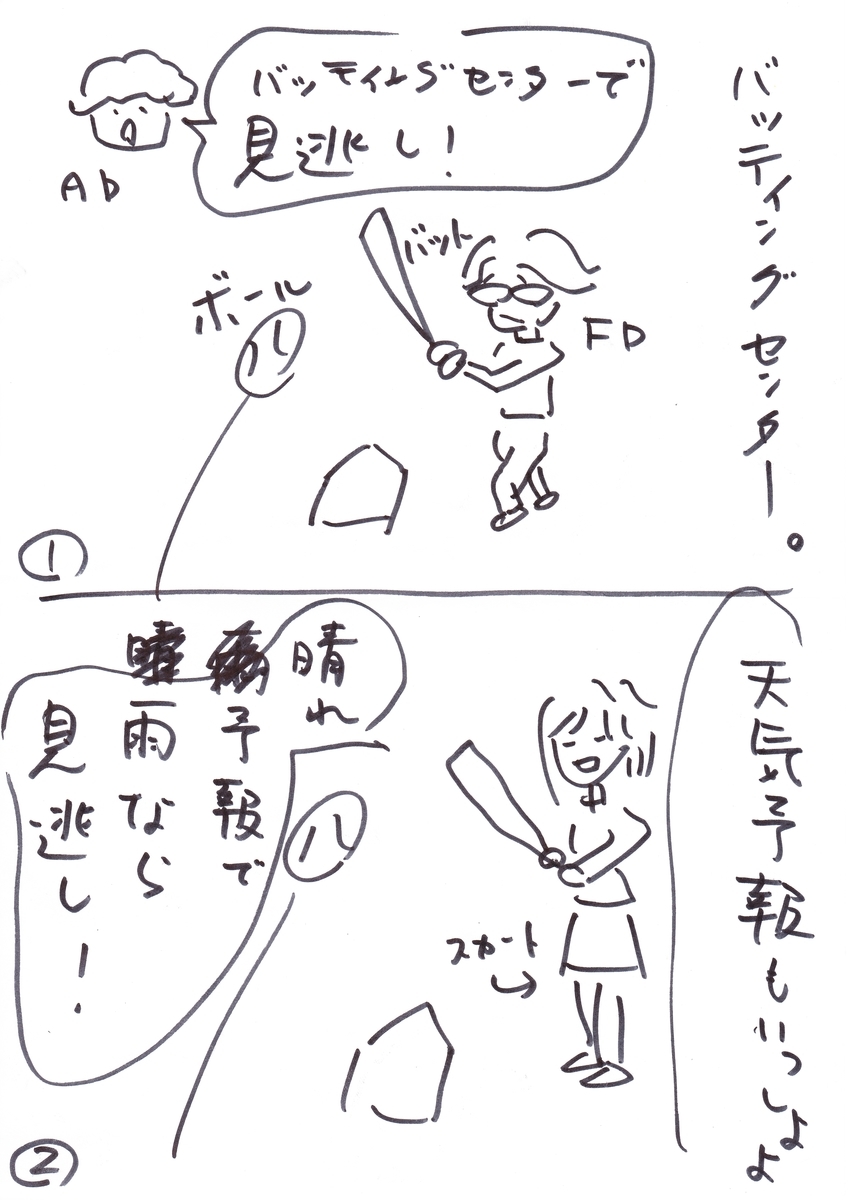 バッティングセンター。
バッティングセンターで
見逃し!
AD
バット
ボール
FD
①
天気予報もいっしょよ
晴れ
予報で
雨なら
見逃し!
スカート
②